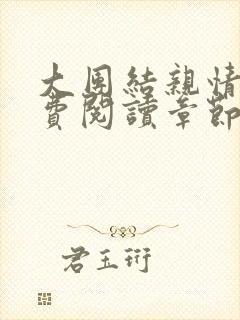 大團結親情
費閱讀章節
君玉珩